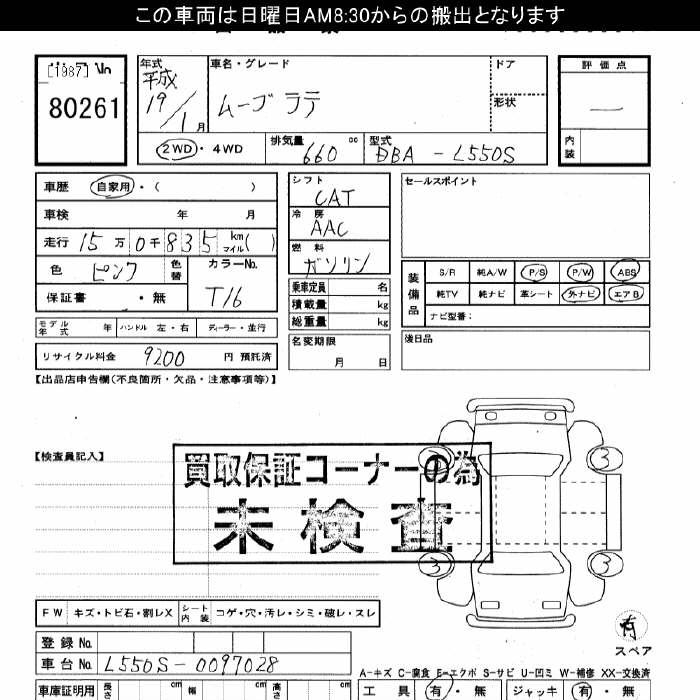 この車両は日曜日AM8:30からの搬出となります
[1987]
80261
年式 車名・グレード ドア 評価点
平成 19/1月 ムーヴ ラテ 形状 —
②WD・4WD 排気量 660 cc 型式 DBA - L550S 内装
車歴 自家用・( )
車検 年 月
走行 15万0千835 km マイル( )
色 ピンク 色替 カラーNo. T16
保証書 ・無
モデル年式 年 ハンドル 左・右 ディーラー・並行
リサイクル料金 9200 円 預託済
シフト CAT
冷房 AAC
燃料 ガソリン
乗車定員 名
積載量 kg
総重量 kg
名変期限 月 日
セールスポイント
装備品
S/R 純A/W P/S P/W ABS
純TV 純ナビ 革シート 外ナビ エアB
ナビ型番:
後日品
【出品店申告欄(不良箇所・欠品・注意事項等)】
【検査員記入】
買取保証コーナーの為
未検査
3 3
3 3
有
スペア
FW キズ・トビ石・割レX シート内装 コゲ・穴・汚レ・シミ・破レ・スレ
登録No.
車台No. L550S-0097028
A-キズ C-腐食 E-エクボ S-サビ U-凹ミ W-補修 XX-交換済
車庫証明用 長さ cm 幅 cm 高さ cm 工具 有・無 ジャッキ 有・無